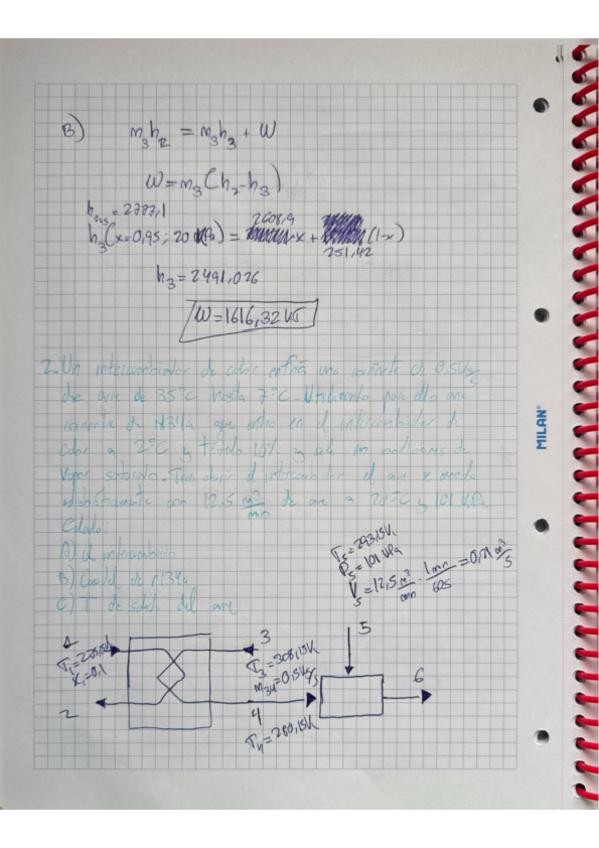 B) m₃h₂ = m₃h₃ + W
W = m₃(h₂-h₃)
= 2777,1
2608,9
h₃(x=0,95; 20 kPa) = x + (1-x)
251,42
h₃ = 2491,026
W = 1616,32 kJ
2. Un intercambiador de calor enfría una corriente de 0,5 kg/s
de aire de 35°C hasta 7°C. Utilizando para ello una
corriente de r134a que entra en el intercambiador de
calor a 2°C y título 10% y sale en condiciones de
vapor saturado. Tras dejar el intercambiador el aire se mezcla
adiabáticamente con 12,5 m³/min de aire a 20°C y 101 kPa.
Calcula:
A) Q intercambiado
B) Caudal de r134a
C) T de salida del aire
T₅ = 293,15K
P₅ = 101 kPa
V₅ = 12,5 m³/min · 1min/60s = 0,21 m³/s
1
T₁ = 275,15K
x₁ = 0,1
2
3
T₃ = 308,15K
= 0,5 kg/s
4
T₄ = 280,15K
5
6
MILAN